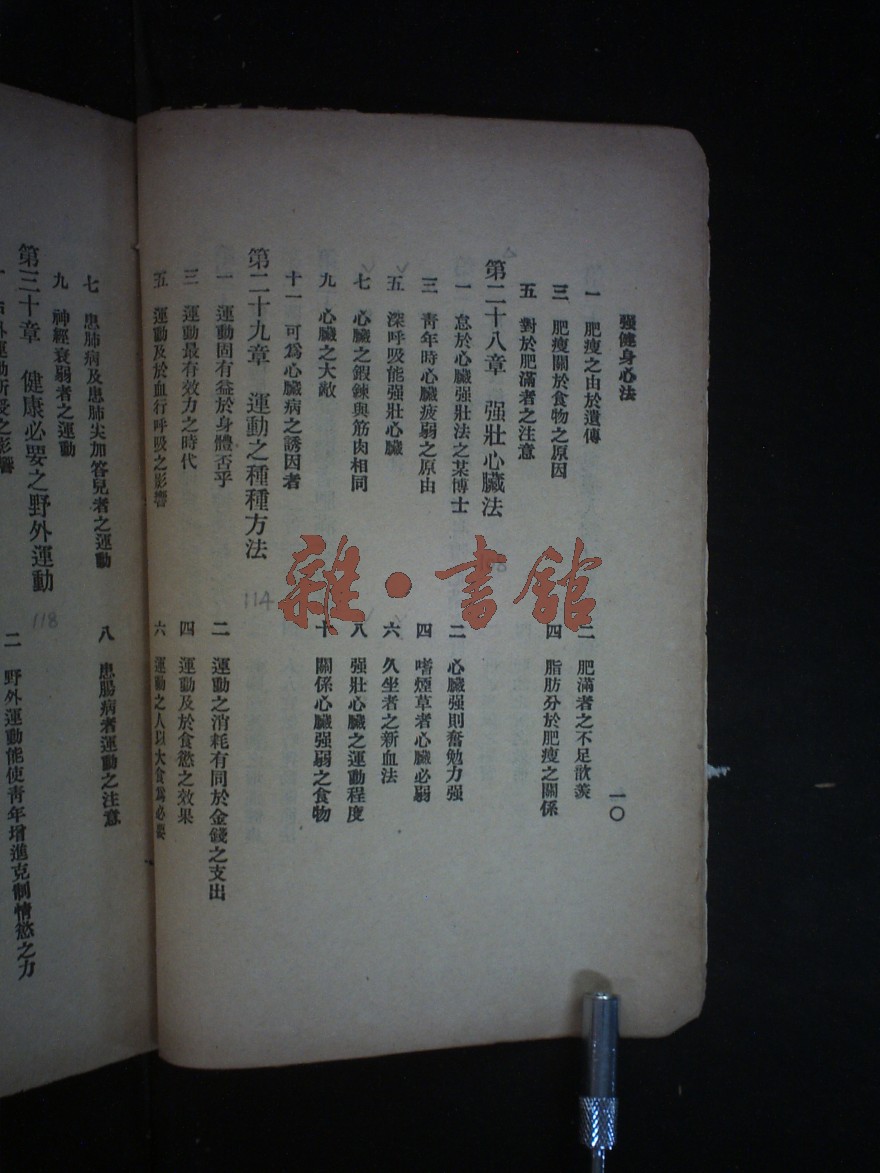 强健身心法
一〇
一　肥瘦之由於遺傳
二　肥滿者之不足歆羨
三　肥瘦關於食物之原因
四　脂肪分於肥瘦之關係
五　對於肥滿者之注意
第二十八章　强壯心臟法
一　怠於心臟强壯法之某博士
二　心臟强則奮勉力强
三　青年時心臟疲弱之原由
四　嗜煙草者心臟必弱
五　深呼吸能强壯心臟
六　久坐者之新血法
七　心臟之鍛鍊與筋肉相同
八　强壯心臟之運動程度
九　心臟之大敵
十　關係心臟强弱之食物
十一　可爲心臟病之誘因者
第二十九章　運動之種種方法
114
一　運動固有益於身體否乎
二　運動之消耗有同於金錢之支出
三　運動最有效力之時代
四　運動及於食慾之效果
五　運動及於血行呼吸之影響
六　運動之人以大食爲必要
七　患肺病及患肺尖加答兒者之運動
八　患腸病者運動之注意
九　神經衰弱者之運動
第三十章　健康必要之野外運動
118
外運動所受之影響
二　野外運動能使青年增進克制情慾之力
雜·書館